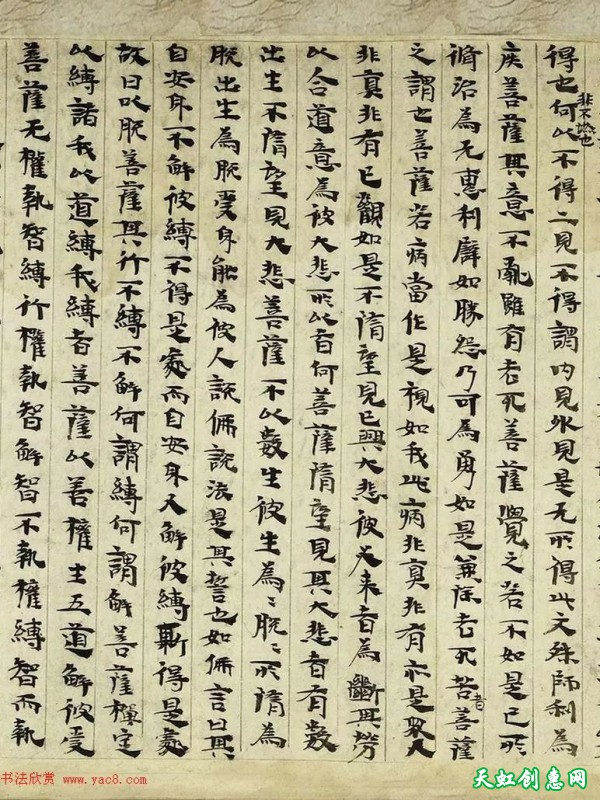 得也何以不得二見不得謂内見外見是无所得此文殊師利為
非不然也
疾菩薩其意不亂雖有老死菩薩覺之若不如是已所
脩治為无惠利譬如勝怨乃可為勇如是兼除老死苦者菩薩
之謂也菩薩若病當作是視如我此病非真非有亦是衆人
非真非有已觀如是不隋望見已興大悲彼若來者為斷其勞
以合道意為彼大悲所以者何菩薩隋望見其大悲者有數
出生不隋望見大悲菩薩不以數生彼生為〻脫〻所隋為
脫出生為脫受身能為彼人說佛說法是其誓也如佛言曰其
自安身不解彼縛不得是處而自安身又解彼縛斯得是處
故曰以脫菩薩其行不縛不解何謂縛何謂解菩薩禪定
以縛諸我以道縛我縛者菩薩以善權生五道解彼受
菩薩无權執智縛行權執智解智不執權縛智而執
书法欣赏 www.yac8.com
天虹创惠网